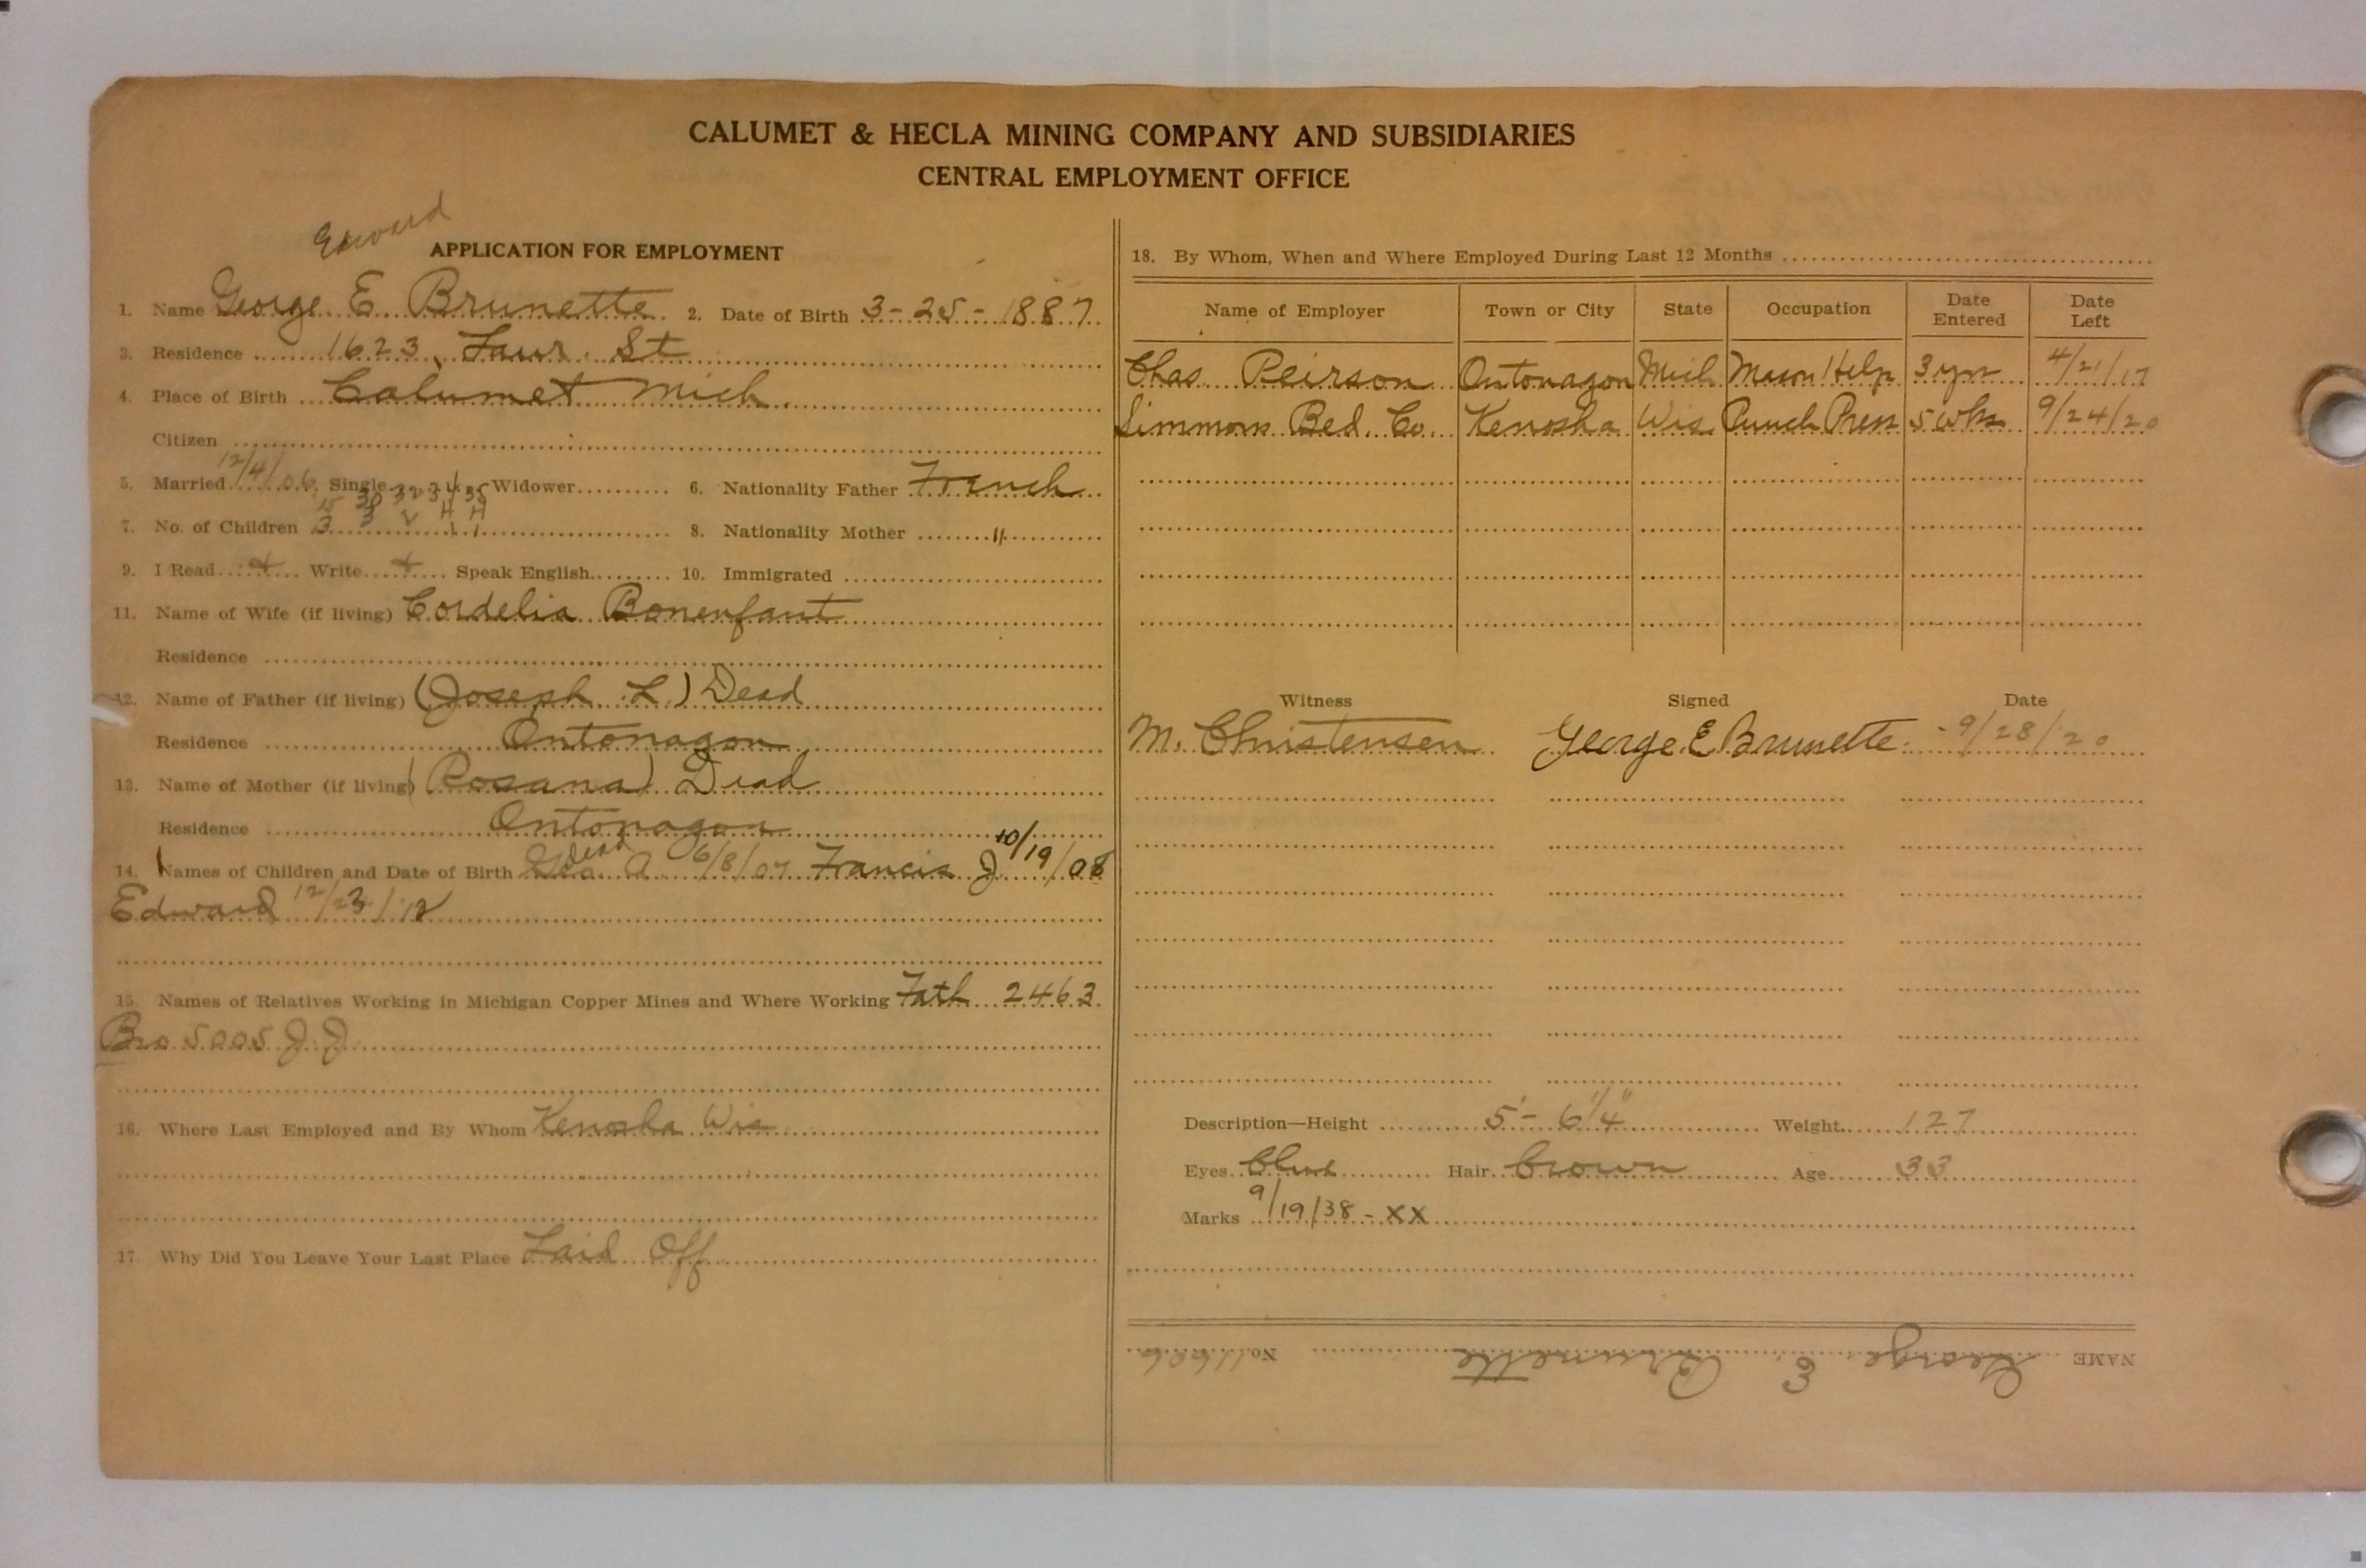 CALUMET & HECLA MINING COMPANY AND SUBSIDIARIES
CENTRAL EMPLOYMENT OFFICE
Edward
APPLICATION FOR EMPLOYMENT
1. Name George E. Brunette 2. Date of Birth 3-25-1887
3. Residence 1623 Laur. St
4. Place of Birth Calumet Mich
Citizen
5. Married 12/4/06 Single Widower 6. Nationality Father French
7. No. of Children 3 8. Nationality Mother "
9. I Read Write Speak English 10. Immigrated
11. Name of Wife (if living) Cordelia Bonenfant
Residence
12. Name of Father (if living) (Joseph L.) Dead
Residence Ontonagon
13. Name of Mother (if living) (Rosana) Dead
Residence Ontonagon
dead
14. Names of Children and Date of Birth Geo. A 6/8/07 Francis J 10/19/08
Edward 12/23/12
15. Names of Relatives Working in Michigan Copper Mines and Where Working Fath 2463
Bro 5005 J.J
16. Where Last Employed and By Whom Kenosha Wis
17. Why Did You Leave Your Last Place Laid Off
18. By Whom, When and Where Employed During Last 12 Months
Name of Employer Town or City State Occupation Date Entered Date Left
Chas Peirson Ontonagon Mich Mason Help 3 yrs 4/21/17
Simmons Bed. Co. Kenosha Wis Punch Press 5 wks 9/24/20
Witness Signed Date
M. Christensen George E Brunette 9/28/20
Description—Height 5'-6 1/4" Weight 127
Eyes blue Hair brown Age 33
Marks 9/19/38 - XX
NAME George E. Brunette No.